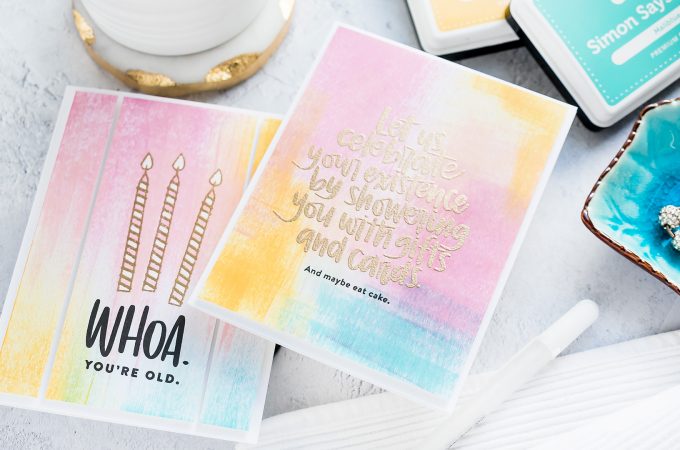 WHOA.
YOU'RE OLD.
Let us
celebrate
your existence
by showering
you with gifts
and cards.
And maybe eat cake.
Simon Say
PREMIUM